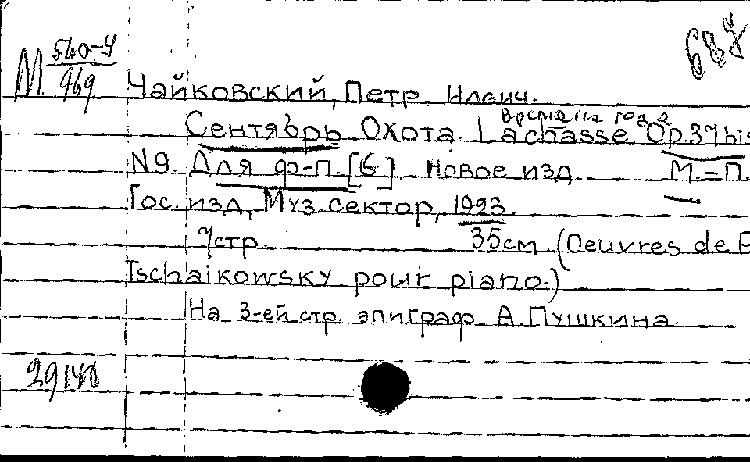 687
М 540-У
969
Чайковский, Петр Ильич.
Времена года
Сентябрь Охота. La chasse Op.37 bis
N9. Для ф-п. [G] Новое изд. М.-П.
Гос. изд, Муз. сектор, 1923.
7 стр. 35 см (Oeuvres de P
Tschaikowsky pour piano.)
На 3-ей стр. эпиграф А. Пушкина